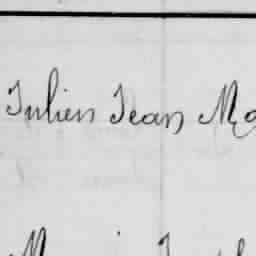 Julien Jean Ma